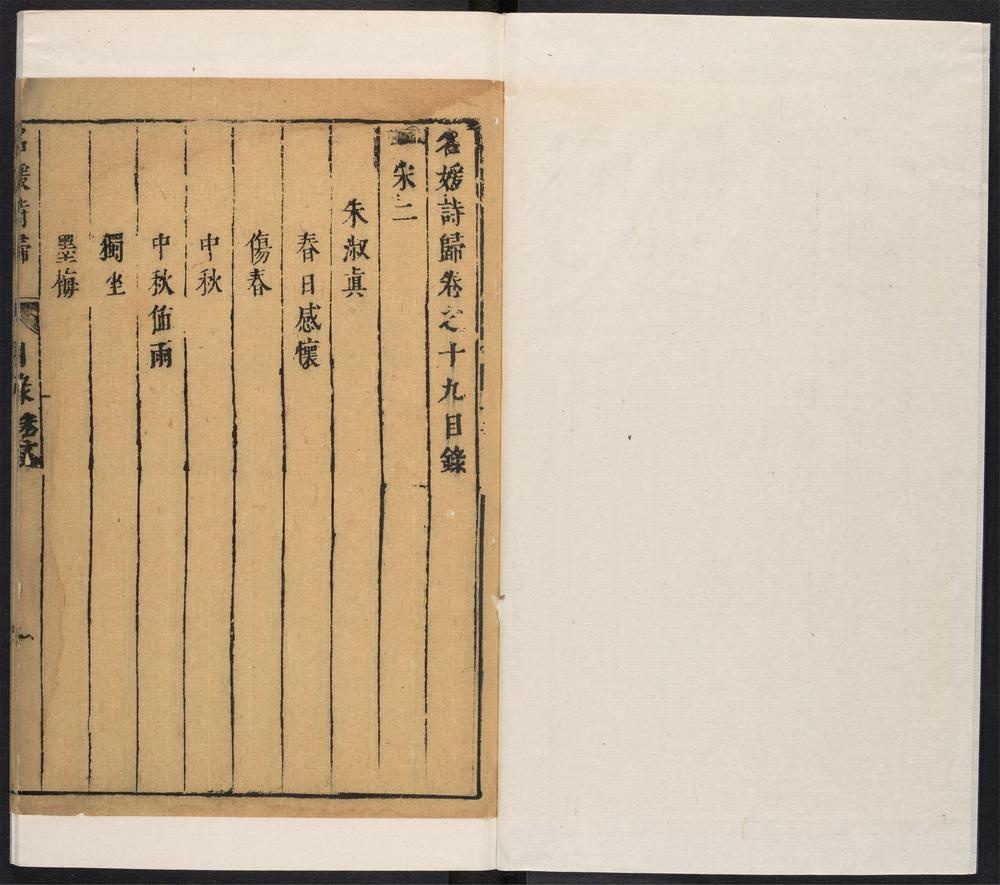 名媛詩歸卷之十九目錄
宋二
朱淑眞
春日感懷
傷春
中秋
中秋值雨
獨坐
墨梅
名媛詩歸
目錄